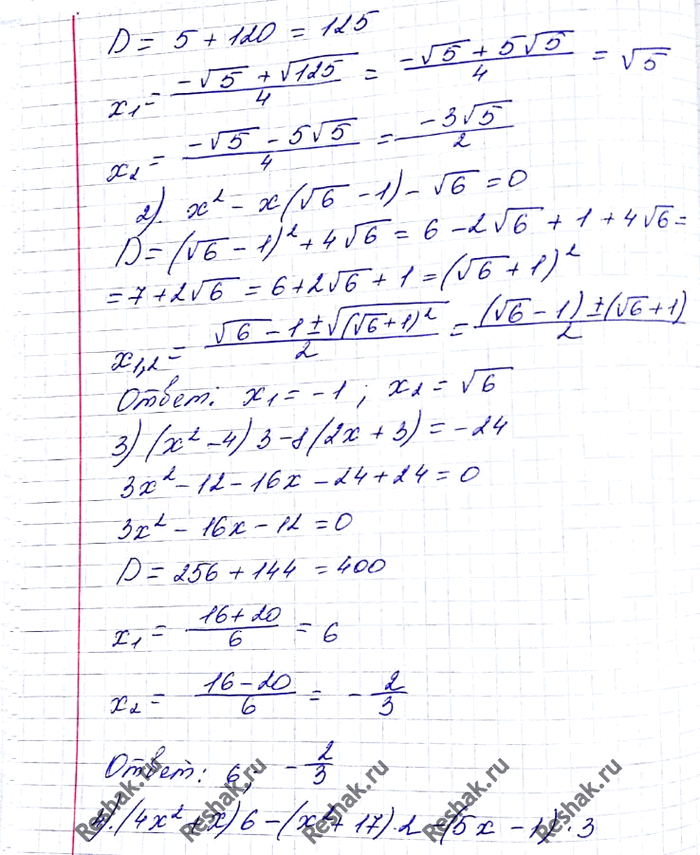 D = 5 + 120 = 125
x₁ = (-√5 + √125)/4 = (-√5 + 5√5)/4 = √5
x₂ = (-√5 - 5√5)/4 = (-3√5)/2
2). x² - x(√6 - 1) - √6 = 0
D = (√6 - 1)² + 4√6 = 6 - 2√6 + 1 + 4√6 =
= 7 + 2√6 = 6 + 2√6 + 1 = (√6 + 1)²
x₁,₂ = (√6 - 1 ± √(√6+1)²)/2 = ((√6 - 1) ± (√6 + 1))/2
Ответ: x₁ = -1 ; x₂ = √6
3) (x² - 4) 3 - 8(2x + 3) = -24
3x² - 12 - 16x - 24 + 24 = 0
3x² - 16x - 12 = 0
D = 256 + 144 = 400
x₁ = (16 + 20)/6 = 6
x₂ = (16 - 20)/6 = -2/3
Ответ: 6; -2/3
(4x² + x) 6 - (x² + 17)·2 - (5x - 1)·3
Reshak.ru
Reshak.ru
Reshak.ru
Reshak.ru